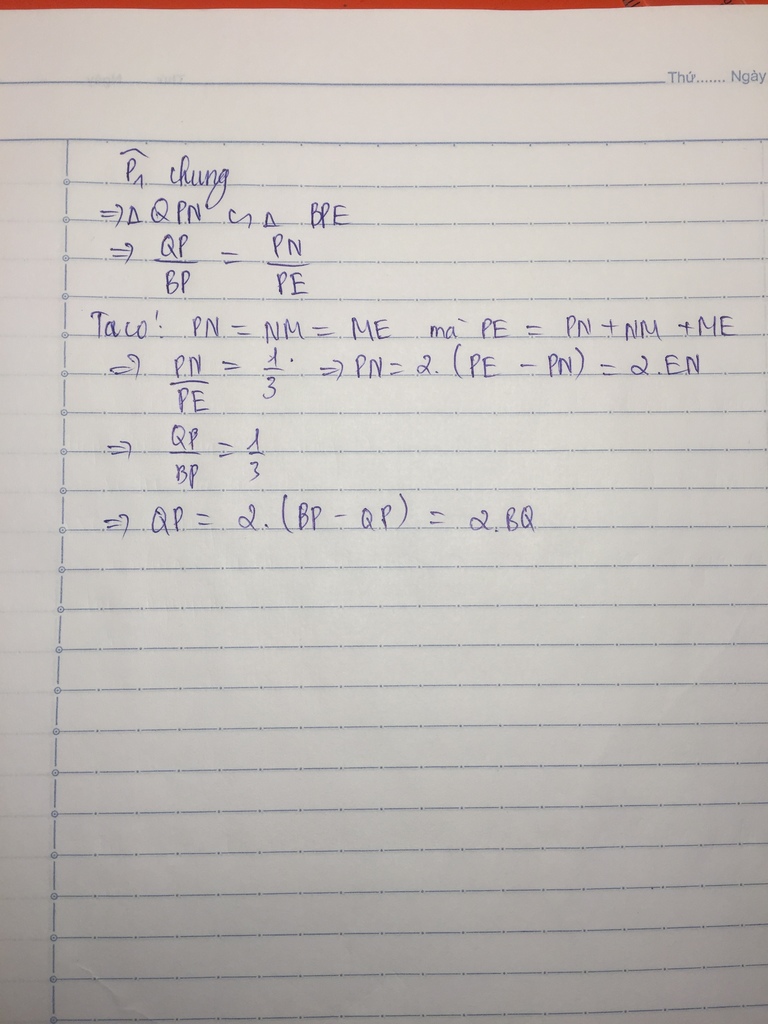 Thứ....... Ngày
P̂₁ chung
⇒ Δ QPN ∽ Δ BPE
⇒ QP/BP = PN/PE
Ta có: PN = NM = ME mà PE = PN + NM + ME
⇒ PN/PE = 1/3. ⇒ PN = 2.(PE - PN) = 2.EN
⇒ QP/BP = 1/3
⇒ QP = 2.(BP - QP) = 2.BQ